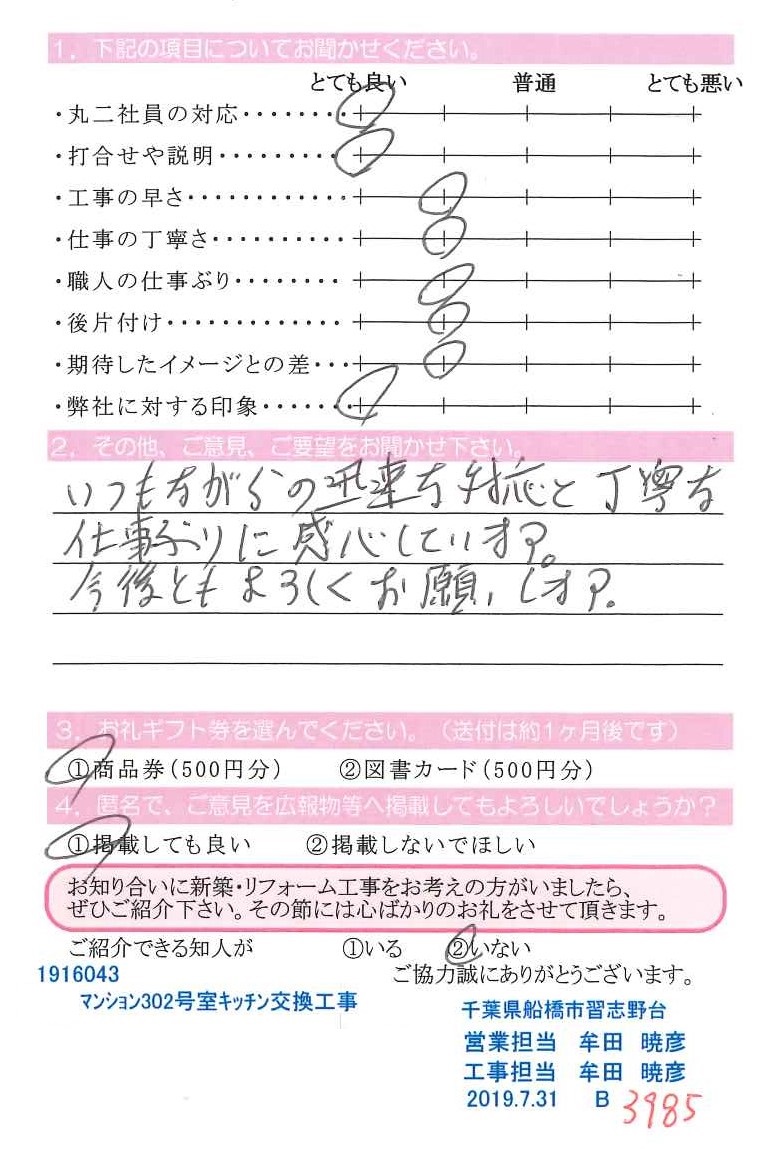 1. 下記の項目についてお聞かせください。
とても良い 普通 とても悪い
・丸二社員の対応・・・・・・・・
・打合せや説明・・・・・・・・・
・工事の早さ・・・・・・・・・・・・
・仕事の丁寧さ・・・・・・・・・・
・職人の仕事ぶり・・・・・・・・
・後片付け・・・・・・・・・・・・・
・期待したイメージとの差・・・
・弊社に対する印象・・・・・・
2. その他、ご意見、ご要望をお聞かせ下さい。
いつもながらの迅速な対応と丁寧な
仕事ぶりに感心しています。
今後ともよろしくお願いします。
3. お礼ギフト券を選んでください。（送付は約1ヶ月後です）
①商品券(500円分) ②図書カード(500円分)
4. 匿名で、ご意見を広報物等へ掲載してもよろしいでしょうか?
①掲載しても良い ②掲載しないでほしい
お知り合いに新築・リフォーム工事をお考えの方がいましたら、
ぜひご紹介下さい。その節には心ばかりのお礼をさせて頂きます。
ご紹介できる知人が ①いる ②いない
1916043 ご協力誠にありがとうございます。
マンション302号室キッチン交換工事
千葉県船橋市習志野台
営業担当 牟田 暁彦
工事担当 牟田 暁彦
2019.7.31 B 3985